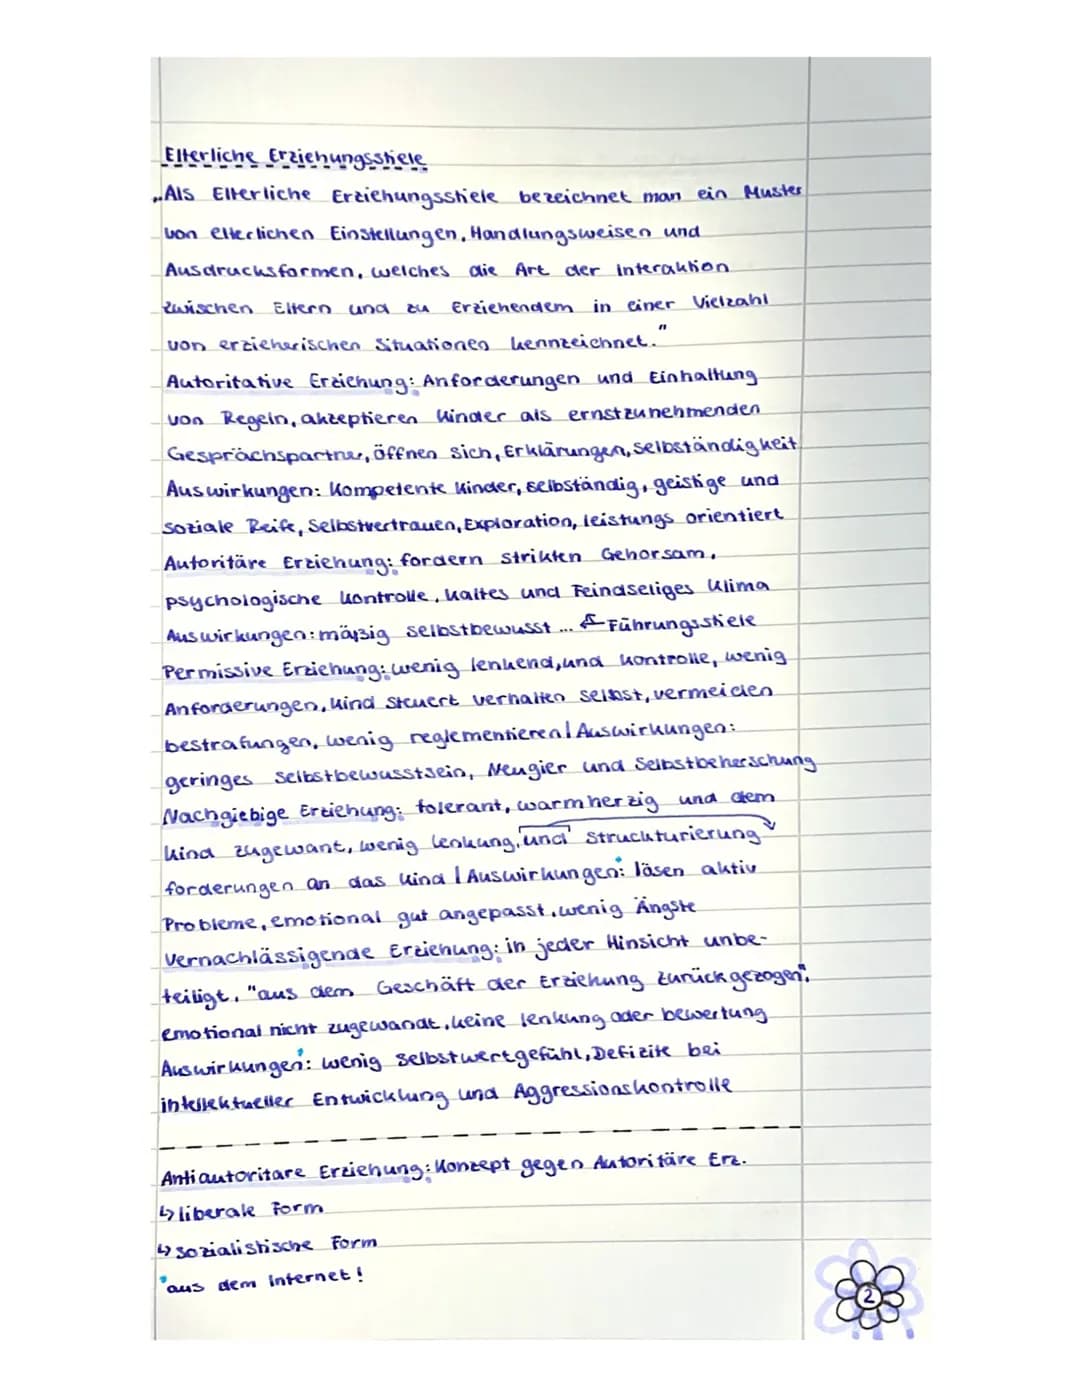 Elterliche Erziehungsstiele
„Als Elterliche Erziehungsstiele bezeichnet man ein Muster
von elterlichen Einstellungen, Handlungsweisen und
Ausdrucksformen, welches die Art der Interaktion
zwischen Eltern und zu Erziehendem in einer Vielzahl
von erzieherischen Situationen kennzeichnet."
Autoritative Erziehung: Anforderungen und Einhaltung
von Regeln, akzeptieren Kinder als ernstzunehmenden
Gesprächspartner, öffnen sich, Erklärungen, Selbständigkeit
Auswirkungen: Kompetente Kinder, selbständig, geistige und
soziale Reife, Selbstvertrauen, Exploration, leistungs orientiert
Autoritäre Erziehung: fordern strikten Gehorsam,
psychologische Kontrolle, kaltes und Feindseliges Klima
Auswirkungen: mäßig selbstbewusst ... ⇐ Führungsstiele
Permissive Erziehung: wenig lenkend, und Kontrolle, wenig
Anforderungen, Kind steuert verhalten selbst, vermeiden
bestrafungen, wenig reglementieren | Auswirkungen:
geringes Selbstbewusstsein, Neugier und Selbstbeherschung
Nachgiebige Erziehung: tolerant, warmherzig und dem
Kind zugewant, wenig lenkung, und Struckturierung
forderungen an das Kind | Auswirkungen: lösen aktiv
Probleme, emotional gut angepasst, wenig Ängste
Vernachlässigende Erziehung: in jeder Hinsicht unbe-
teiligt, "aus dem Geschäft der Erziehung zurückgezogen",
emotional nicht zugewandt, keine lenkung oder bewertung
Auswirkungen: wenig Selbstwertgefühl, Defizite bei
intellektueller Entwicklung und Aggressionskontrolle
Antiautoritäre Erziehung: Konzept gegen Autoritäre Erz.
↳ liberale Form
↳ sozialistische Form
'aus dem Internet!
2